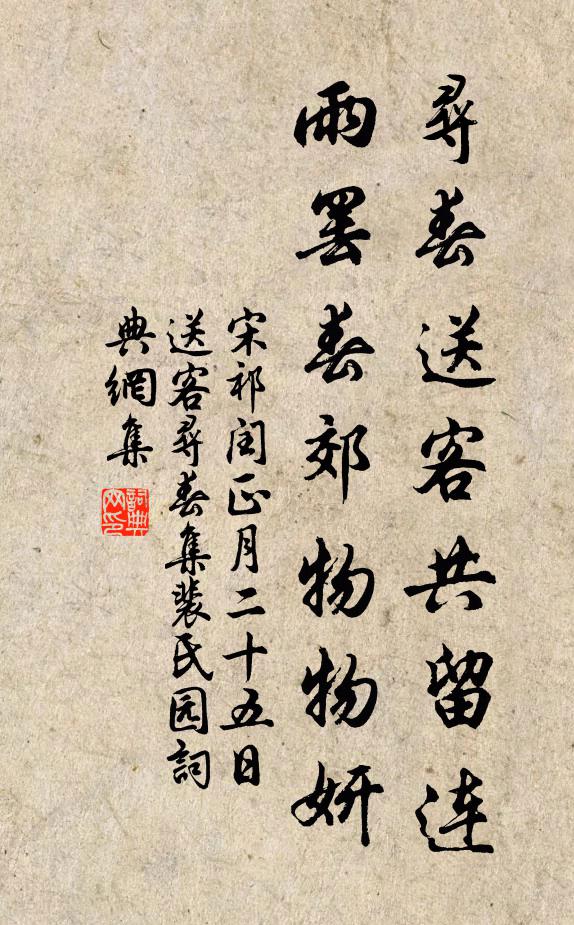 尋春送客共留连
雨罢春郊物物妍
宋祁闰正月二十五日
送客尋春集裴氏园詞
典網集
詞典网印